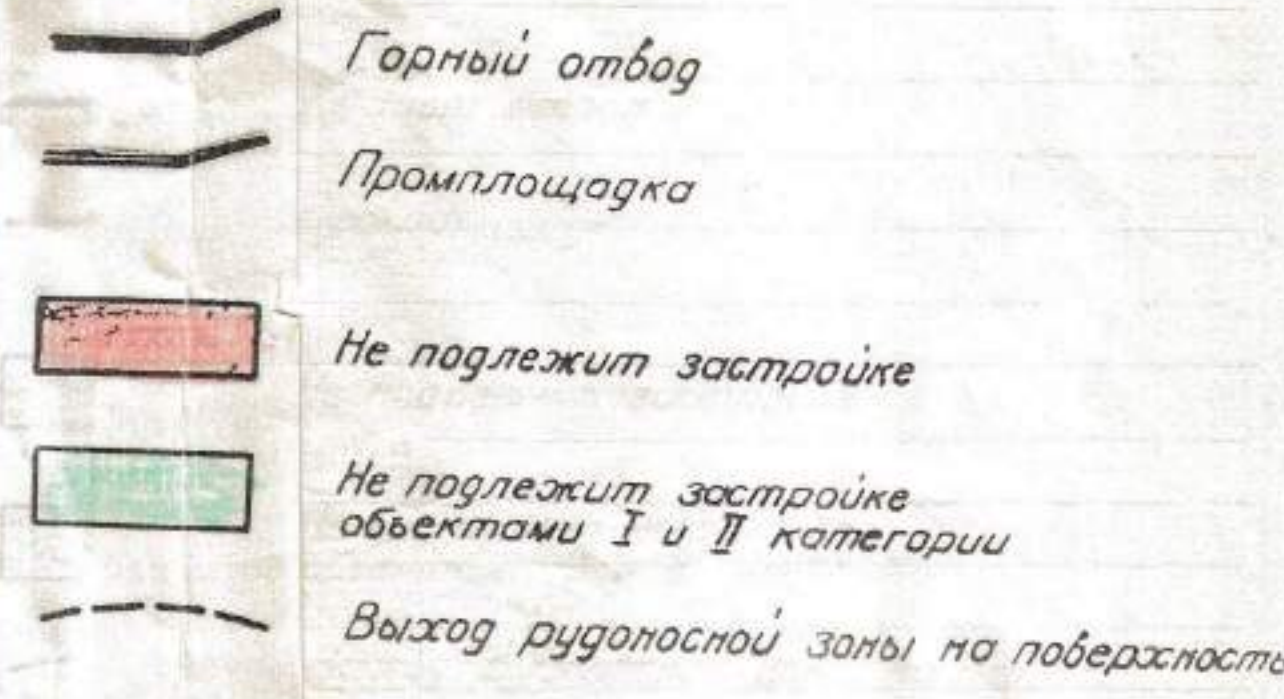 Горный отвод
Промплощадка
Не подлежит застройке
Не подлежит застройке
объектами I и II категории
Выход рудоносной зоны на поверхность